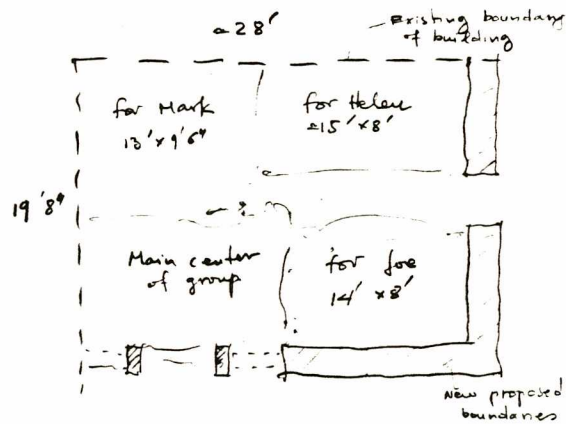 ≃28'
Existing boundary
of building
for Mark
13' x 9'6"
for Helen
≃15' x 8'
19'8"
Main center
of group
for Joe
14' x 8'
New proposed
boundaries